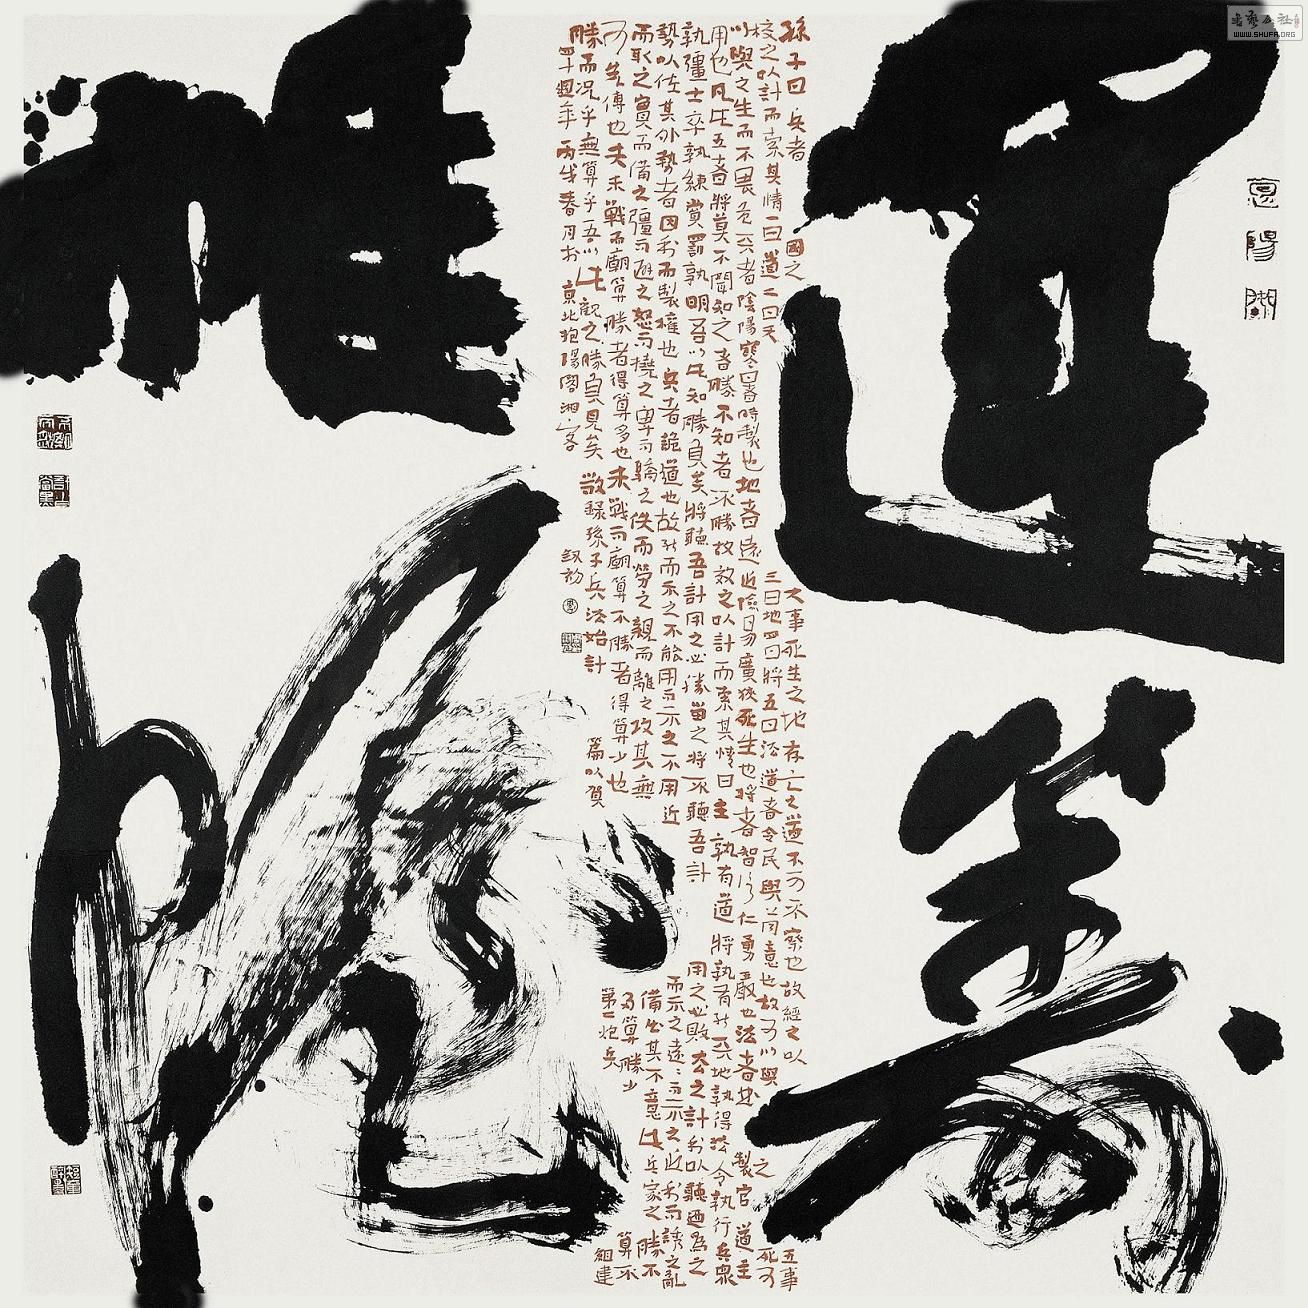 運
筹
帷
幄
孫子曰兵者國之大事死生之地存亡之道不可不察也故經之以五事
校之以計而索其情一曰道二曰天三曰地四曰將五曰法道者令民與上同意也故可以與之死可
以與之生而不畏危天者陰陽寒暑時製也地者遠近險易廣狹死生也將者智信仁勇嚴也法者曲製官道主
用也凡此五者將莫不聞知之者勝不知者不勝故效之以計而索其情曰主孰有道將孰有能天地孰得法令孰行兵眾
孰彊士卒孰練賞罰孰明吾以此知勝負矣將聽吾計用之必勝留之將不聽吾計用之必敗去之計利以聽迺為之
勢以佐其外勢者因利而製權也兵者詭道也故能而示之不能用而示之不用近而示之遠遠而示之近利而誘之亂
而取之實而備之彊而避之怒而撓之卑而驕之佚而勞之親而離之攻其無備出其不意此兵家之勝不
可先傳也夫未戰而廟算勝者得算多也未戰而廟算不勝者得算少也多算勝少算不
勝而況乎無算乎吾以此觀之勝負見矣敬錄孫子兵法始計篇以賀第二炮兵組建
四十週年丙戌春月於京北抱陽閣湘客
WWW.SHUFA.ORG